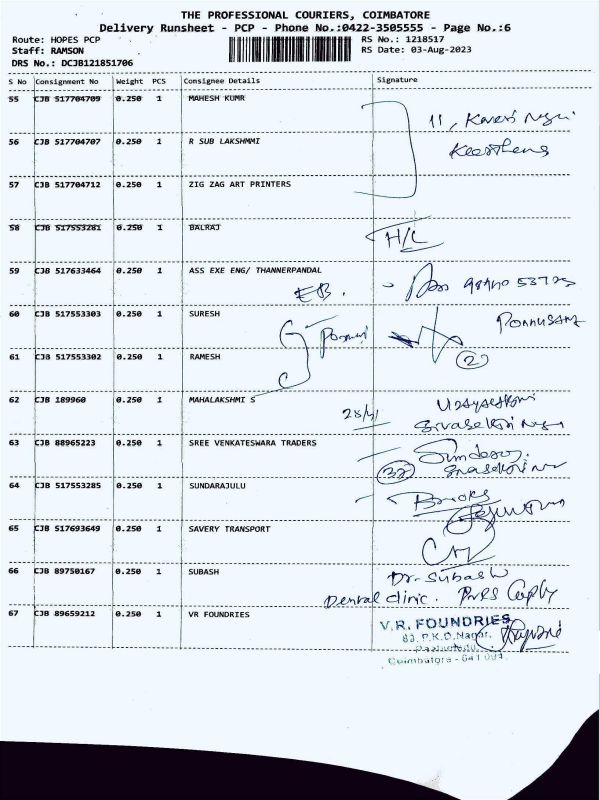 THE PROFESSIONAL COURIERS, COIMBATORE
Delivery Runsheet - PCP - Phone No.:0422-3505555 - Page No.:6
Route: HOPES PCP RS No.: 1218517
Staff: RAMSON RS Date: 03-Aug-2023
DRS No.: DCJB121851706
S No Consignment No Weight PCS Consignee Details Signature
55 CJB 517704709 0.250 1 MAHESH KUMR
11,
56 CJB 517704707 0.250 1 R SUB LAKSHMMI
57 CJB 517704712 0.250 1 ZIG ZAG ART PRINTERS
58 CJB 517553281 0.250 1 BALRAJ
H/L
59 CJB 517633464 0.250 1 ASS EXE ENG/ THANNERPANDAL
EB.
60 CJB 517553303 0.250 1 SURESH
61 CJB 517553302 0.250 1 RAMESH
2
62 CJB 189960 0.250 1 MAHALAKSHMI S
63 CJB 88965223 0.250 1 SREE VENKATESWARA TRADERS
64 CJB 517553285 0.250 1 SUNDARAJULU
65 CJB 517693649 0.250 1 SAVERY TRANSPORT
66 CJB 89750167 0.250 1 SUBASH
Dr. Subash
Dental clinic.
67 CJB 89659212 0.250 1 VR FOUNDRIES
V.R. FOUNDRIES
83, P.K.D.Nagar,
Coimbatore - 641 004.